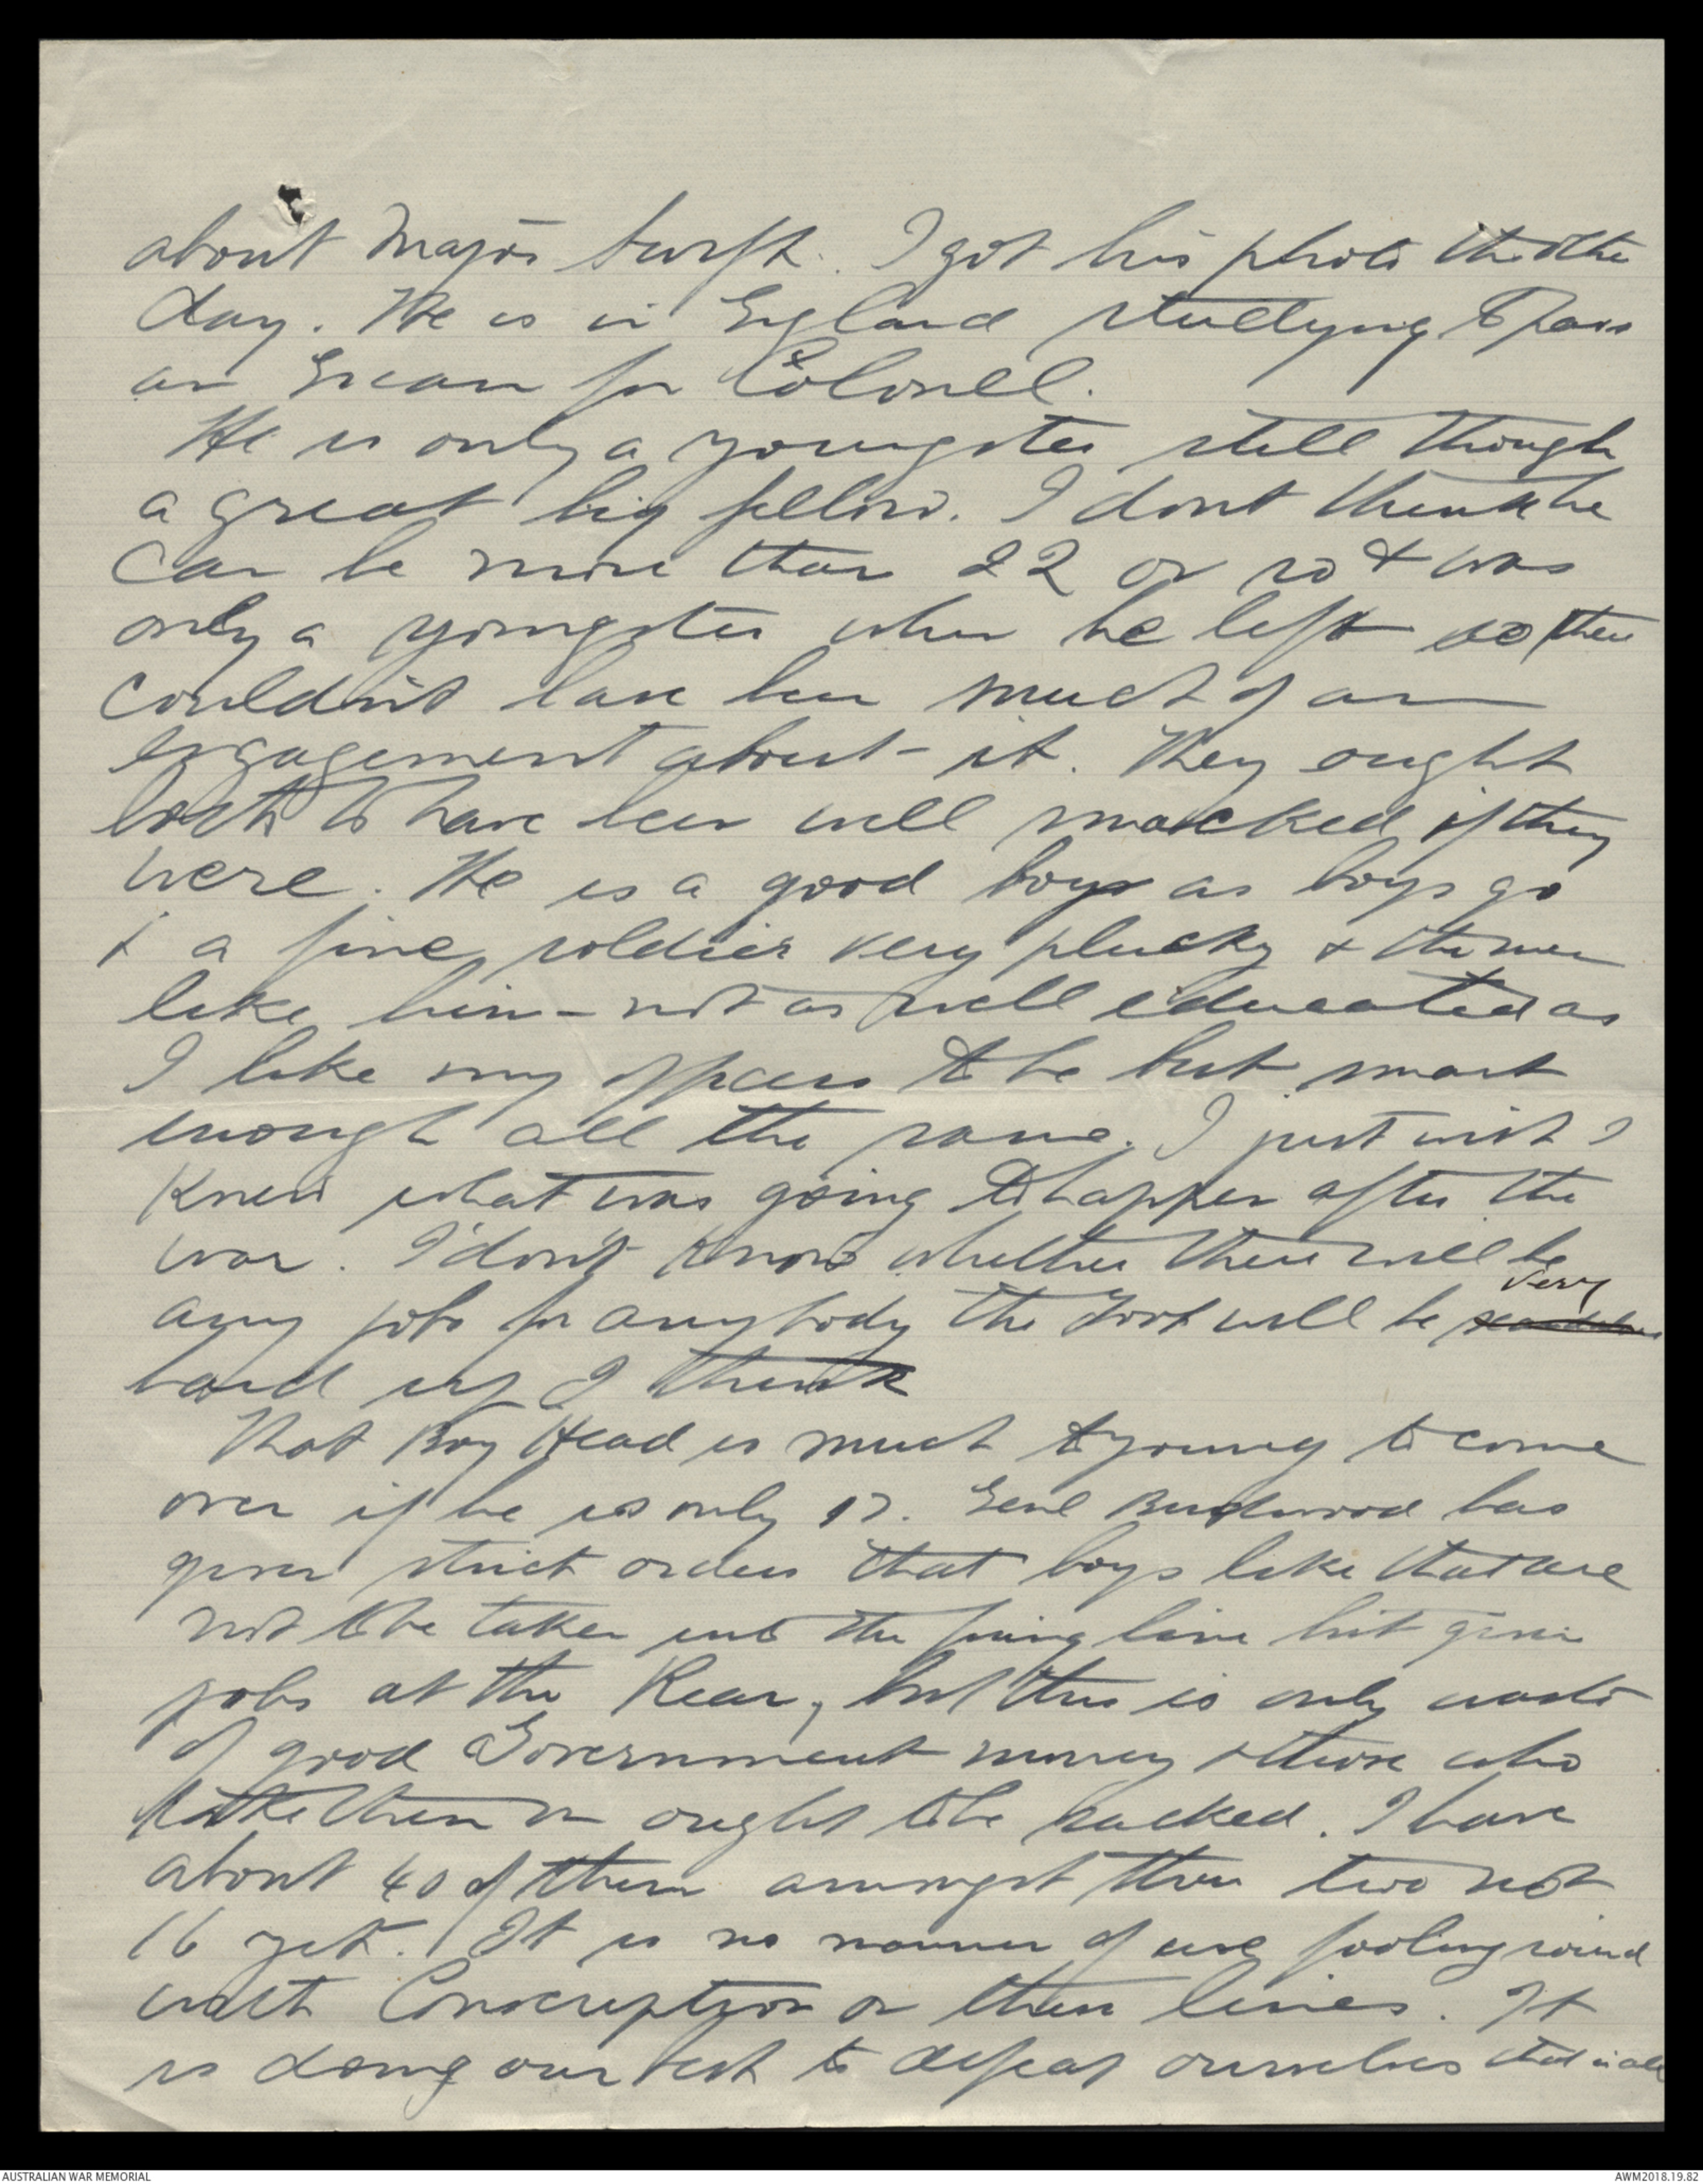 about Major Swift. I got his photo the other
day. He is in England studying to pass
an Exam for Colonel.
He is only a youngster still though
a great big fellow. I dont think he
can be more than 22 or so & was
only a youngster when he left so there
couldn't have been much of an
engagement about it. They ought
both to have been well smacked if they
were. He is a good boy as boys go
& a fine soldier very plucky & the men
like him - not as well educated as
I like my officers to be but smart
enough all the same. I just wish I
knew what was going to happen after the
war. I don't know whether there will be
any jobs for anybody the Govt will be very
hard up I think
That Boy Head is much to young to come
over if he is only 17. Genl Birdwood has
given strict orders that boys like that are
not to be taken into the firing line but given
jobs at the Rear, but this is only waste
of good Government money & those who
take them on ought to be sacked. I have
about 40 of them amongst them two not
16 yet. It is no manner of use fooling round
with Conscription on these lines. It
is doing our best to defeat ourselves that is all
AUSTRALIAN WAR MEMORIAL
AWM2018.19.82